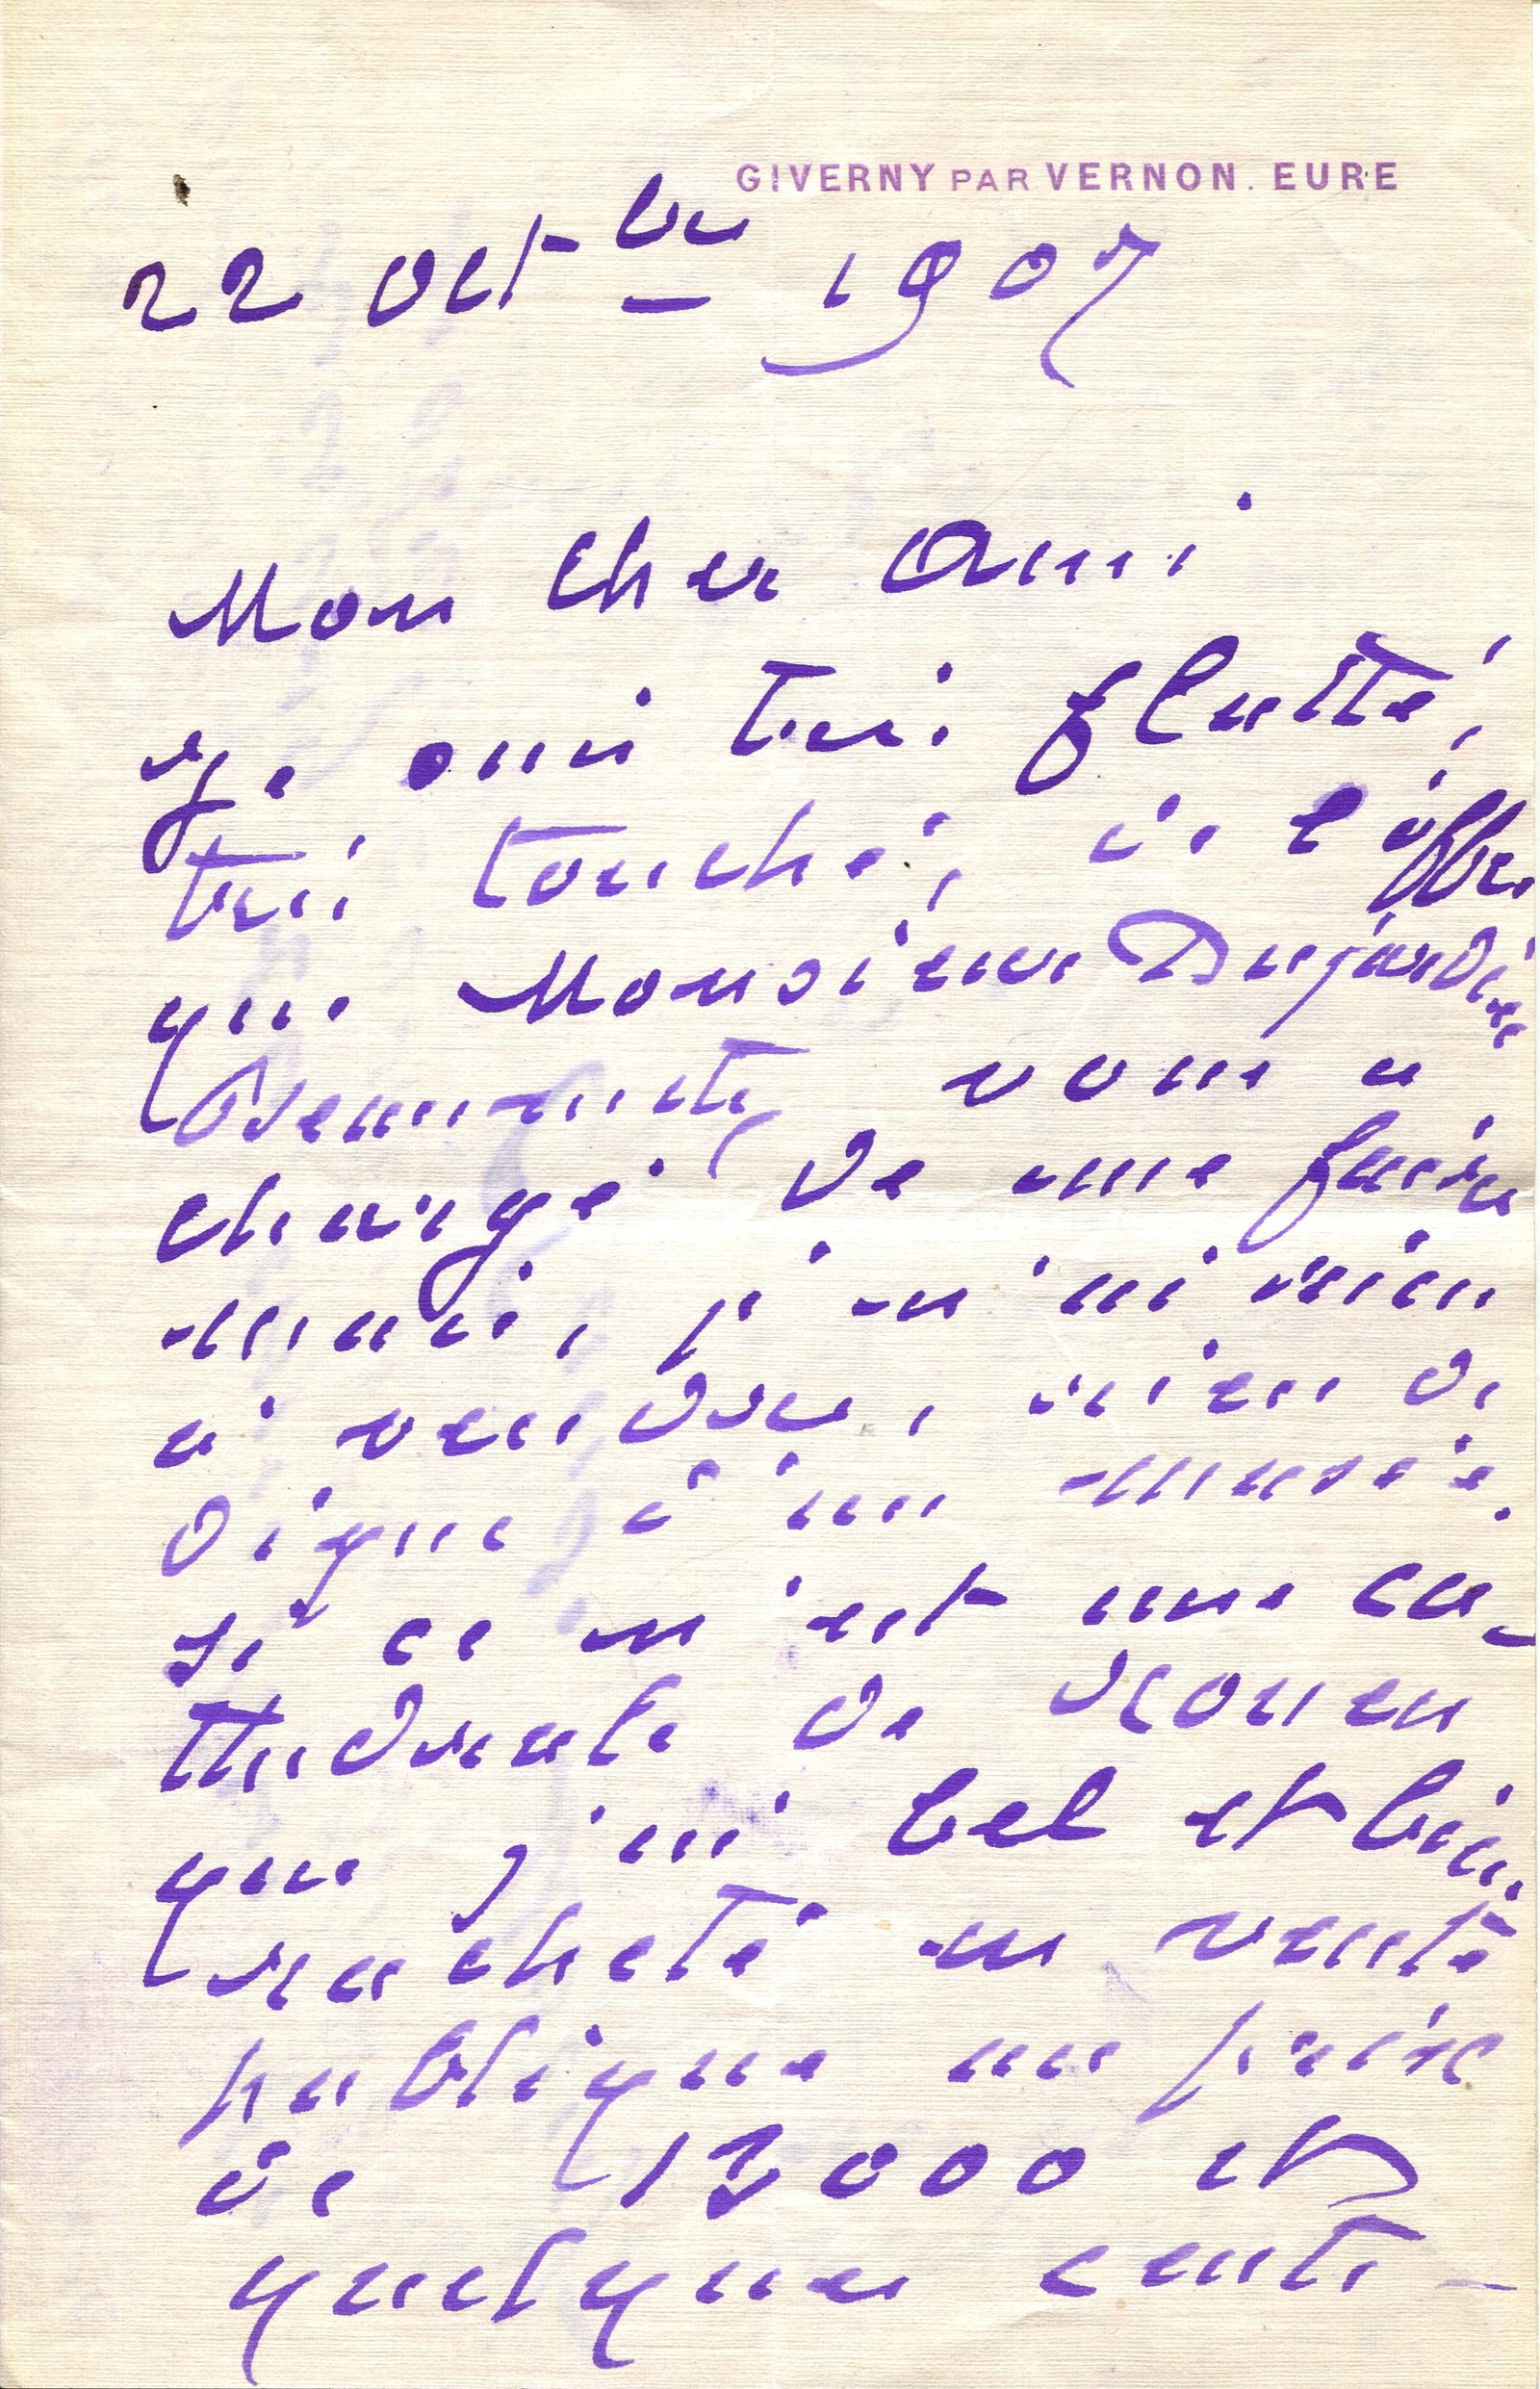 GIVERNY PAR VERNON. EURE
22 Octbre 1907
Mon cher ami
Je suis très flatté,
très touché, de l'offre
que Monsieur Dujardin
Beaumetz vous a
chargé de me faire
mais, je n'ai rien
à vendre, rien de
digne d'un musée.
si ce n'est une ca-
thedrale de Rouen
que j'ai bel et bien
racheté en vente
publique au prix
de 13000 et
quelques cents